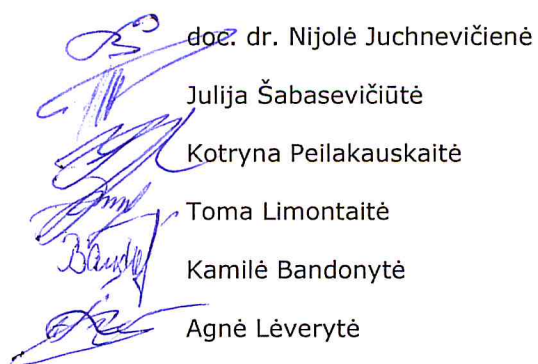 doc. dr. Nijolė Juchnevičienė
Julija Šabasevičiūtė
Kotryna Peilakauskaitė
Toma Limontaitė
Kamilė Bandonytė
Agnė Lėverytė